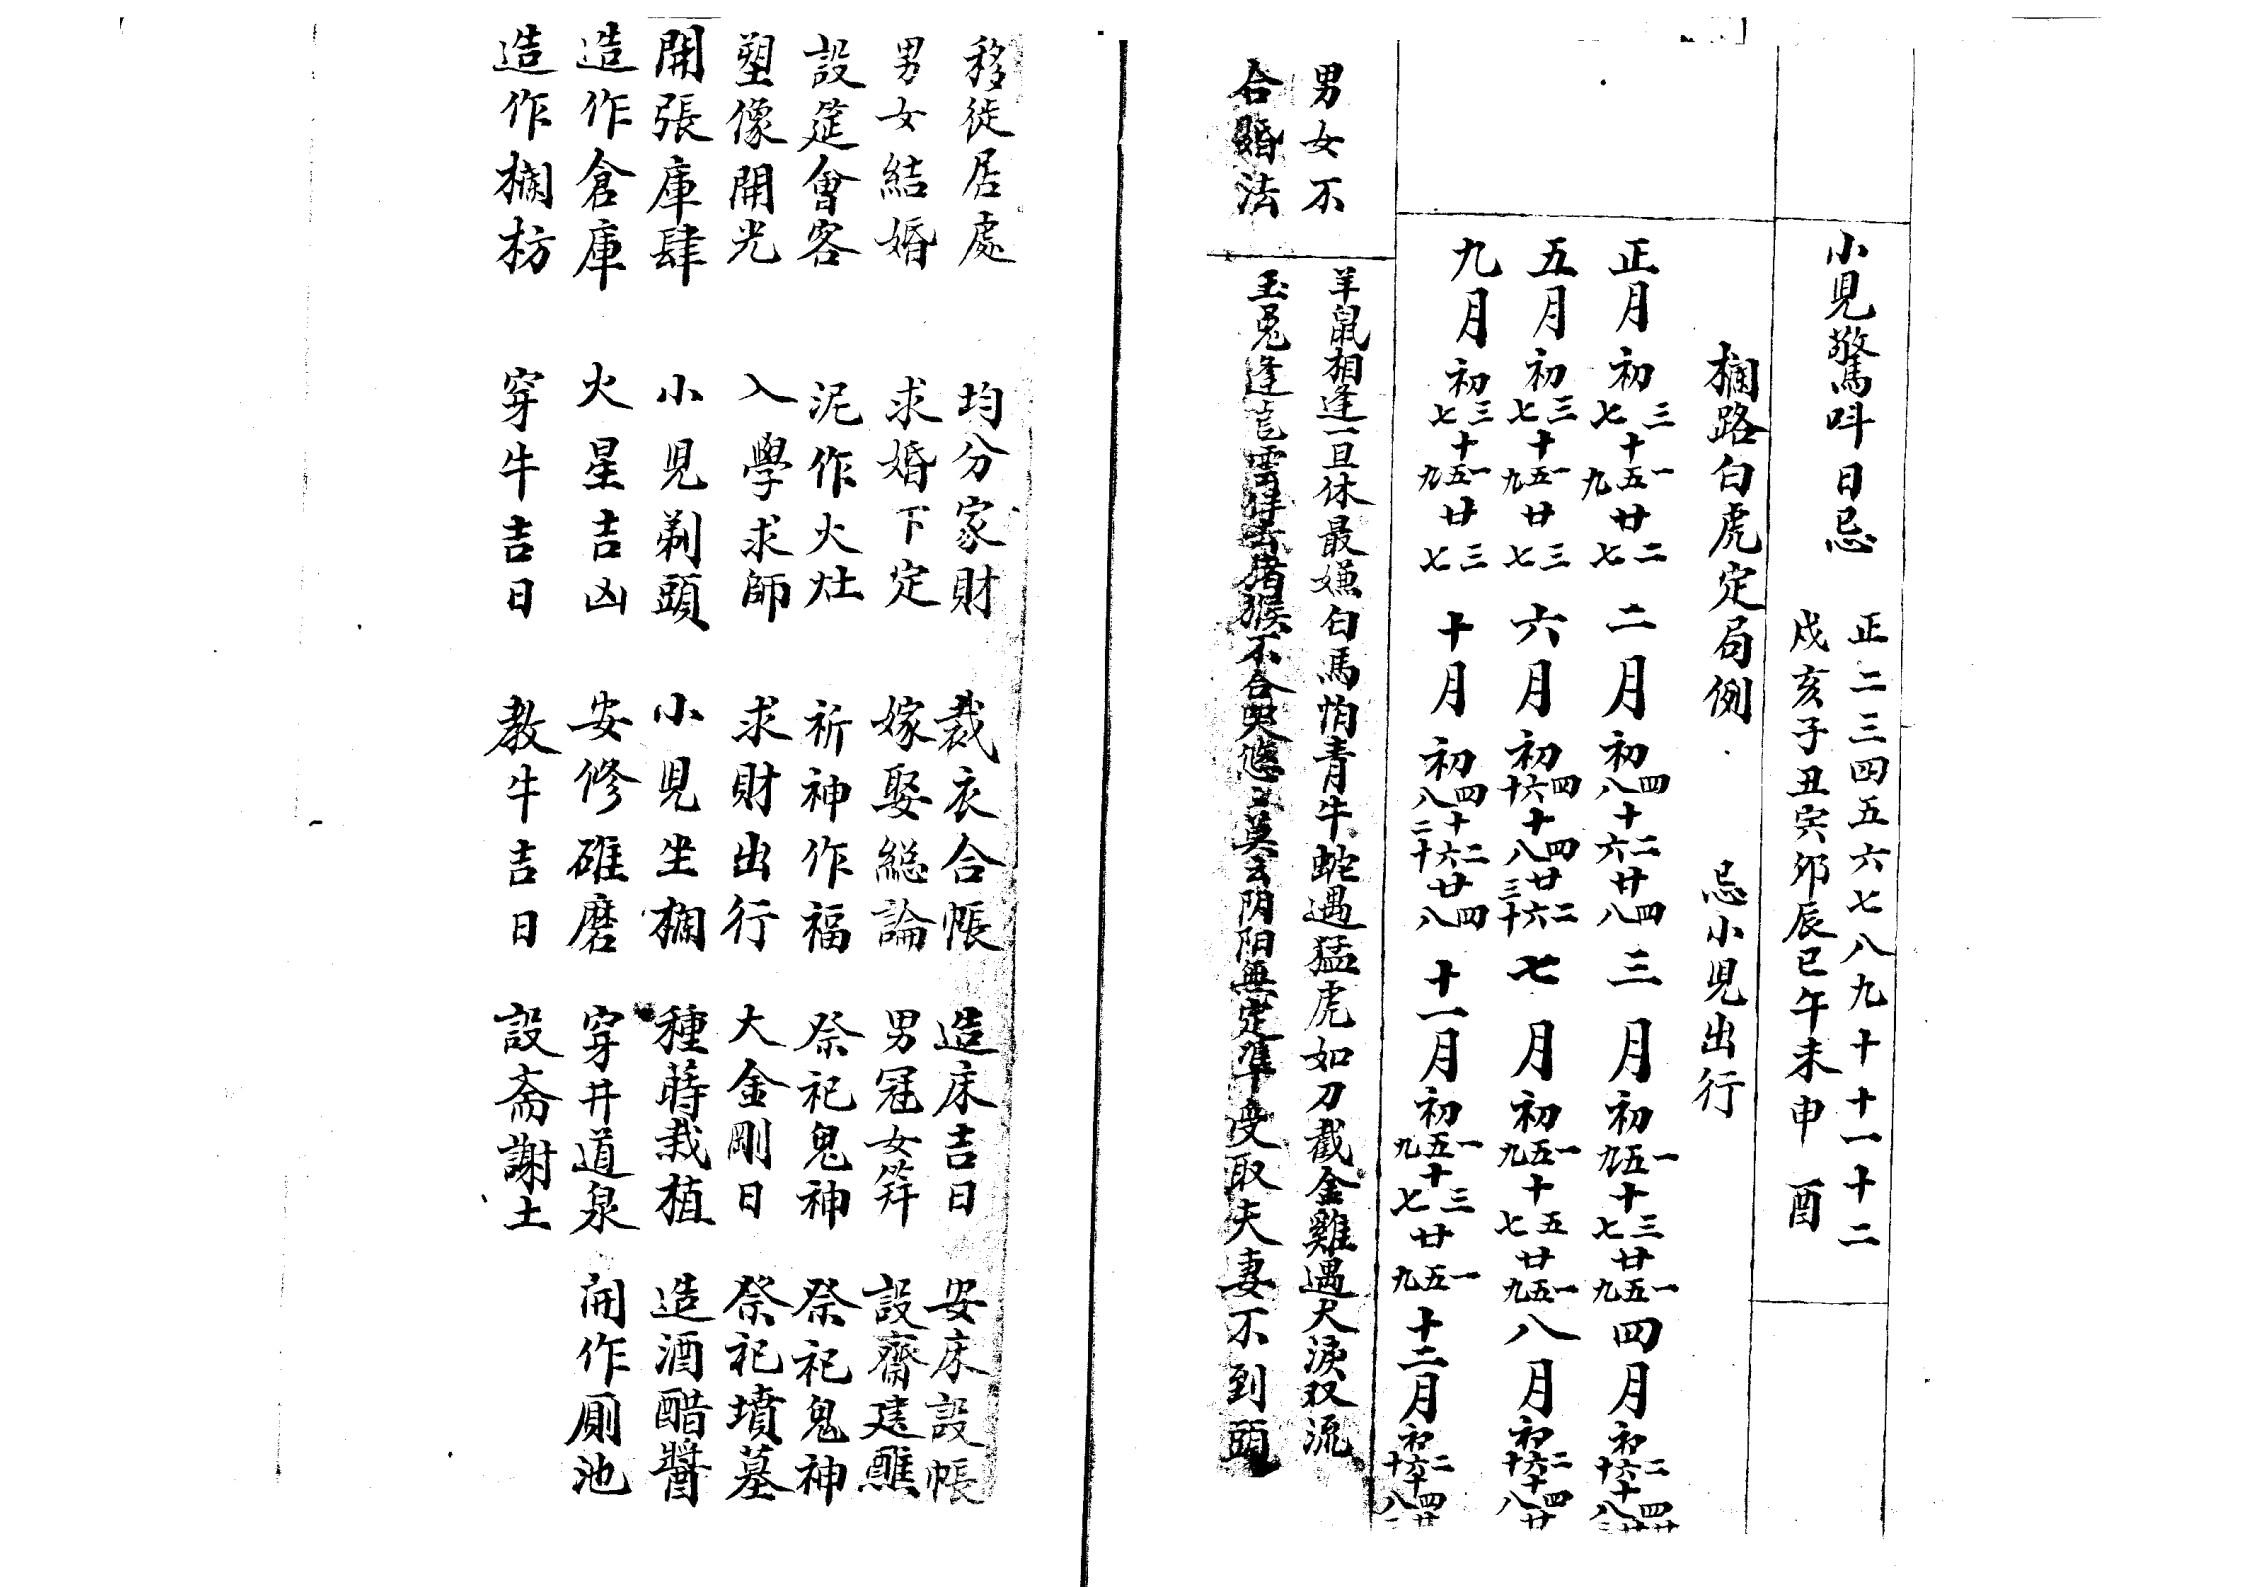 小兒驚呌日忌
正二三四五六七八九十十一十二
戌亥子丑寅卯辰巳午未申酉
欄路白虎定局例 忌小兒出行
正月初三七十一五九廿二七 二月初四八十二六廿四八 三月初一五九十三七廿一五九 四月初二六十十四八
五月初三七十一五九廿三七 六月初四六十十四八廿二六三十 七月初一五九十五七廿一五九 八月初二六十十四八廿
九月初三七十一五九廿三七 十月初四八十二六二十廿四八 十一月初一五九十三七廿一五九 十二月初二六十十四八
男女不
合婚法
羊鼠相逢一旦休最嫌白馬怕青牛蛇遇猛虎如刀截金雞遇犬淚双流
玉兔逢龍雲裡去猪猴不合哭悠々莫去阴阳無定準受取夫妻不到頭
移徙居處 均分家財 裁衣合帳 造床吉日 安床設帳
男女結婚 求婚下定 嫁娶総論 男冠女笄 設齋建醮
設筵會客 泥作火灶 祈神作福 祭祀鬼神 祭祀鬼神
塑像開光 入學求師 求財出行 大金剛日 祭祀墳墓
開張庫肆 小兒剃頭 小兒坐欄 種蒔栽植 造酒醋醬
造作倉庫 火星吉凶 安修碓磨 穿井道泉 開作厠池
造作欄枋 穿牛吉日 教牛吉日 設斋謝土